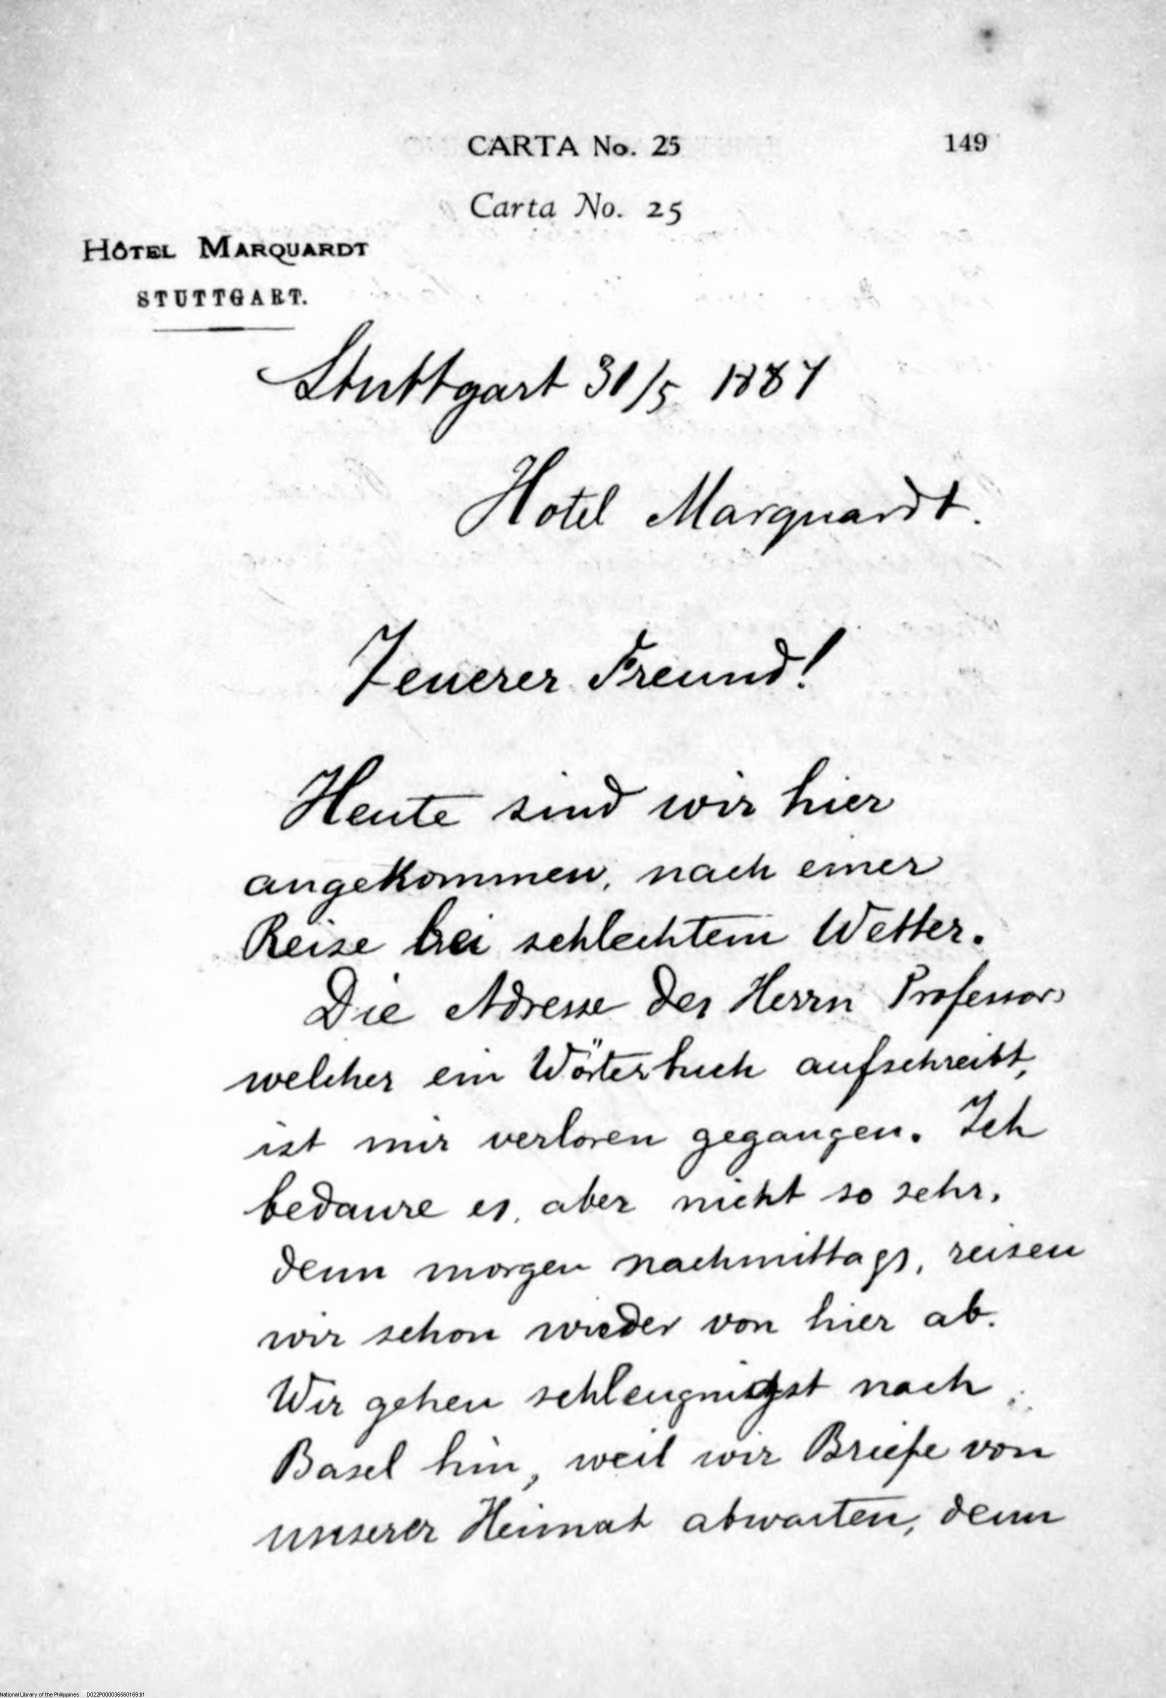 CARTA No. 25 149
Carta No. 25
HÔTEL MARQUARDT
STUTTGART.
Stuttgart 31/5 1887
Hotel Marquardt.
Teuerer Freund!
Heute sind wir hier
angekommen, nach einer
Reise bei schlechtem Wetter.
Die Adresse des Herrn Professors
welcher ein Wörterbuch aufschreibt,
ist mir verloren gegangen. Ich
bedaure es, aber nicht so sehr,
denn morgen nachmittags, reisen
wir schon wieder von hier ab.
Wir gehen schleugnigst nach
Basel hin, weil wir Briefe von
unserer Heimat abwarten, denn
National Library of the Philippines